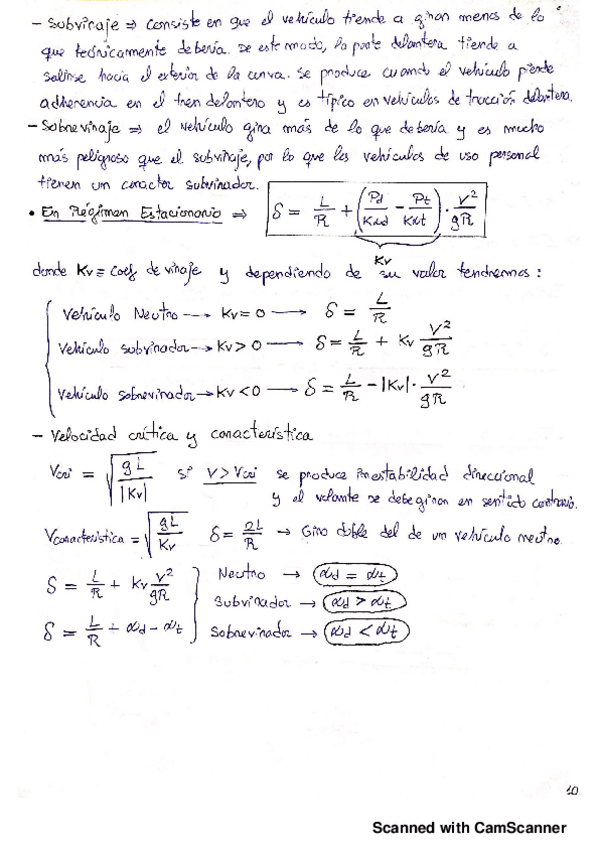 - Subviraje ⇒ consiste en que el vehículo tiende a girar menos de lo
que teóricamente debería. De este modo, la parte delantera tiende a
salirse hacia el exterior de la curva. Se produce cuando el vehículo pierde
adherencia en el tren delantero y es típico en vehículos de tracción delantera.
- Sobreviraje ⇒ el vehículo gira más de lo que debería y es mucho
más peligroso que el subviraje, por lo que los vehículos de uso personal
tienen un carácter subvirador.
• En Régimen Estacionario ⇒ δ = L/R + (Pd/Kαd - Pt/Kαt) · V²/gR
Kv
donde Kv ≡ coef. de viraje y dependiendo de su valor tendremos:
Vehículo Neutro --→ Kv = 0 → δ = L/R
Vehículo subvirador --→ Kv > 0 → δ = L/R + Kv V²/gR
Vehículo sobrevirador → Kv < 0 → δ = L/R - |Kv| · V²/gR
- Velocidad crítica y característica
Vcri = √(gL/|Kv|) si V > Vcri se produce inestabilidad direccional
y el volante se debe girar en sentido contrario.
Vcaracterística = √(gL/Kv) δ = 2L/R → Giro doble del de un vehículo neutro.
δ = L/R + Kv V²/gR Neutro → αd = αt
Subvirador → αd > αt
δ = L/R + αd - αt Sobrevirador → αd < αt
10
Scanned with CamScanner